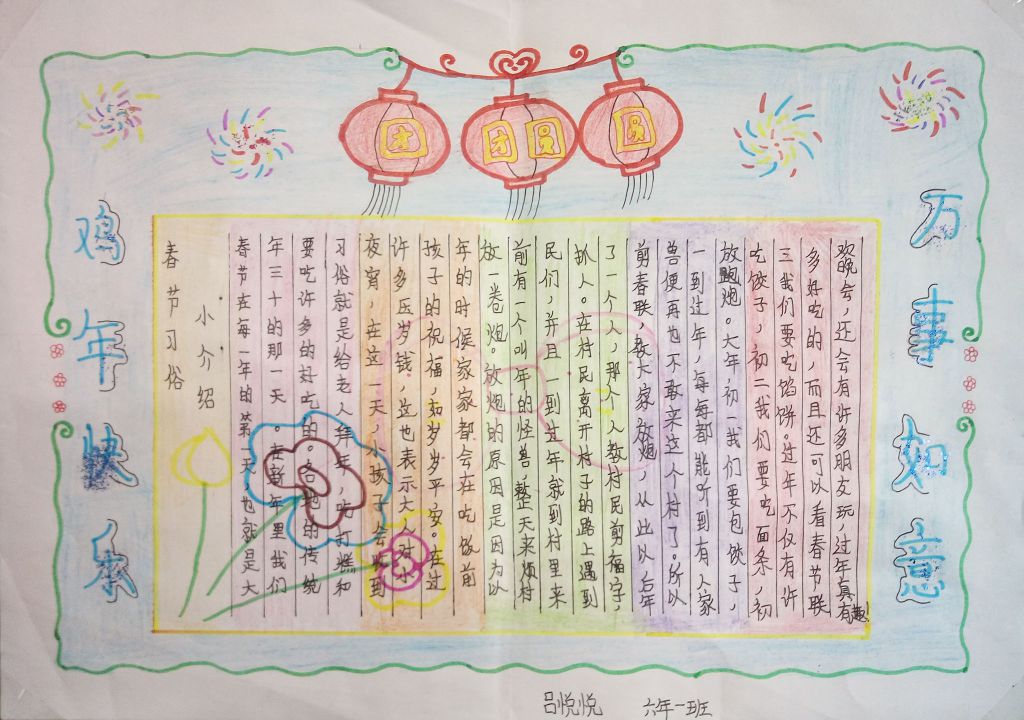 团
团圆
圆
鸡年快乐
万事如意
春节习俗
小介绍
春节在每一年的第一天也就是大
年三十的那一天。在新年里我们
要吃许多的好吃的。各地的传统
习俗就是给老人拜年,吃打糕和
夜宵,在这一天,小孩子会收到
许多压岁钱,这也表示大人对小
孩子的祝福,如岁岁平安。在过
年的时候家家都会在吃饭前
放一卷炮。放炮的原因是因为以
前有一个叫年的怪兽,整天来烦村
民们,并且一到过年就到村里来
抓人。在村民离开村子的路上遇到
了一个人,那个人教村民剪福字,
剪春联,教大家放炮,从此以后年
兽便再也不敢来这个村了。所以
一到过年,每每都能听到有人家
放炮。大年初一我们要包饺子,
吃饺子,初二我们要吃面条,初
三我们要吃馅饼。过年不仅有许
多好吃的,而且还可以看春节联
晚会,还会有许多朋友玩,过年真有趣!
吕悦悦 六年一班